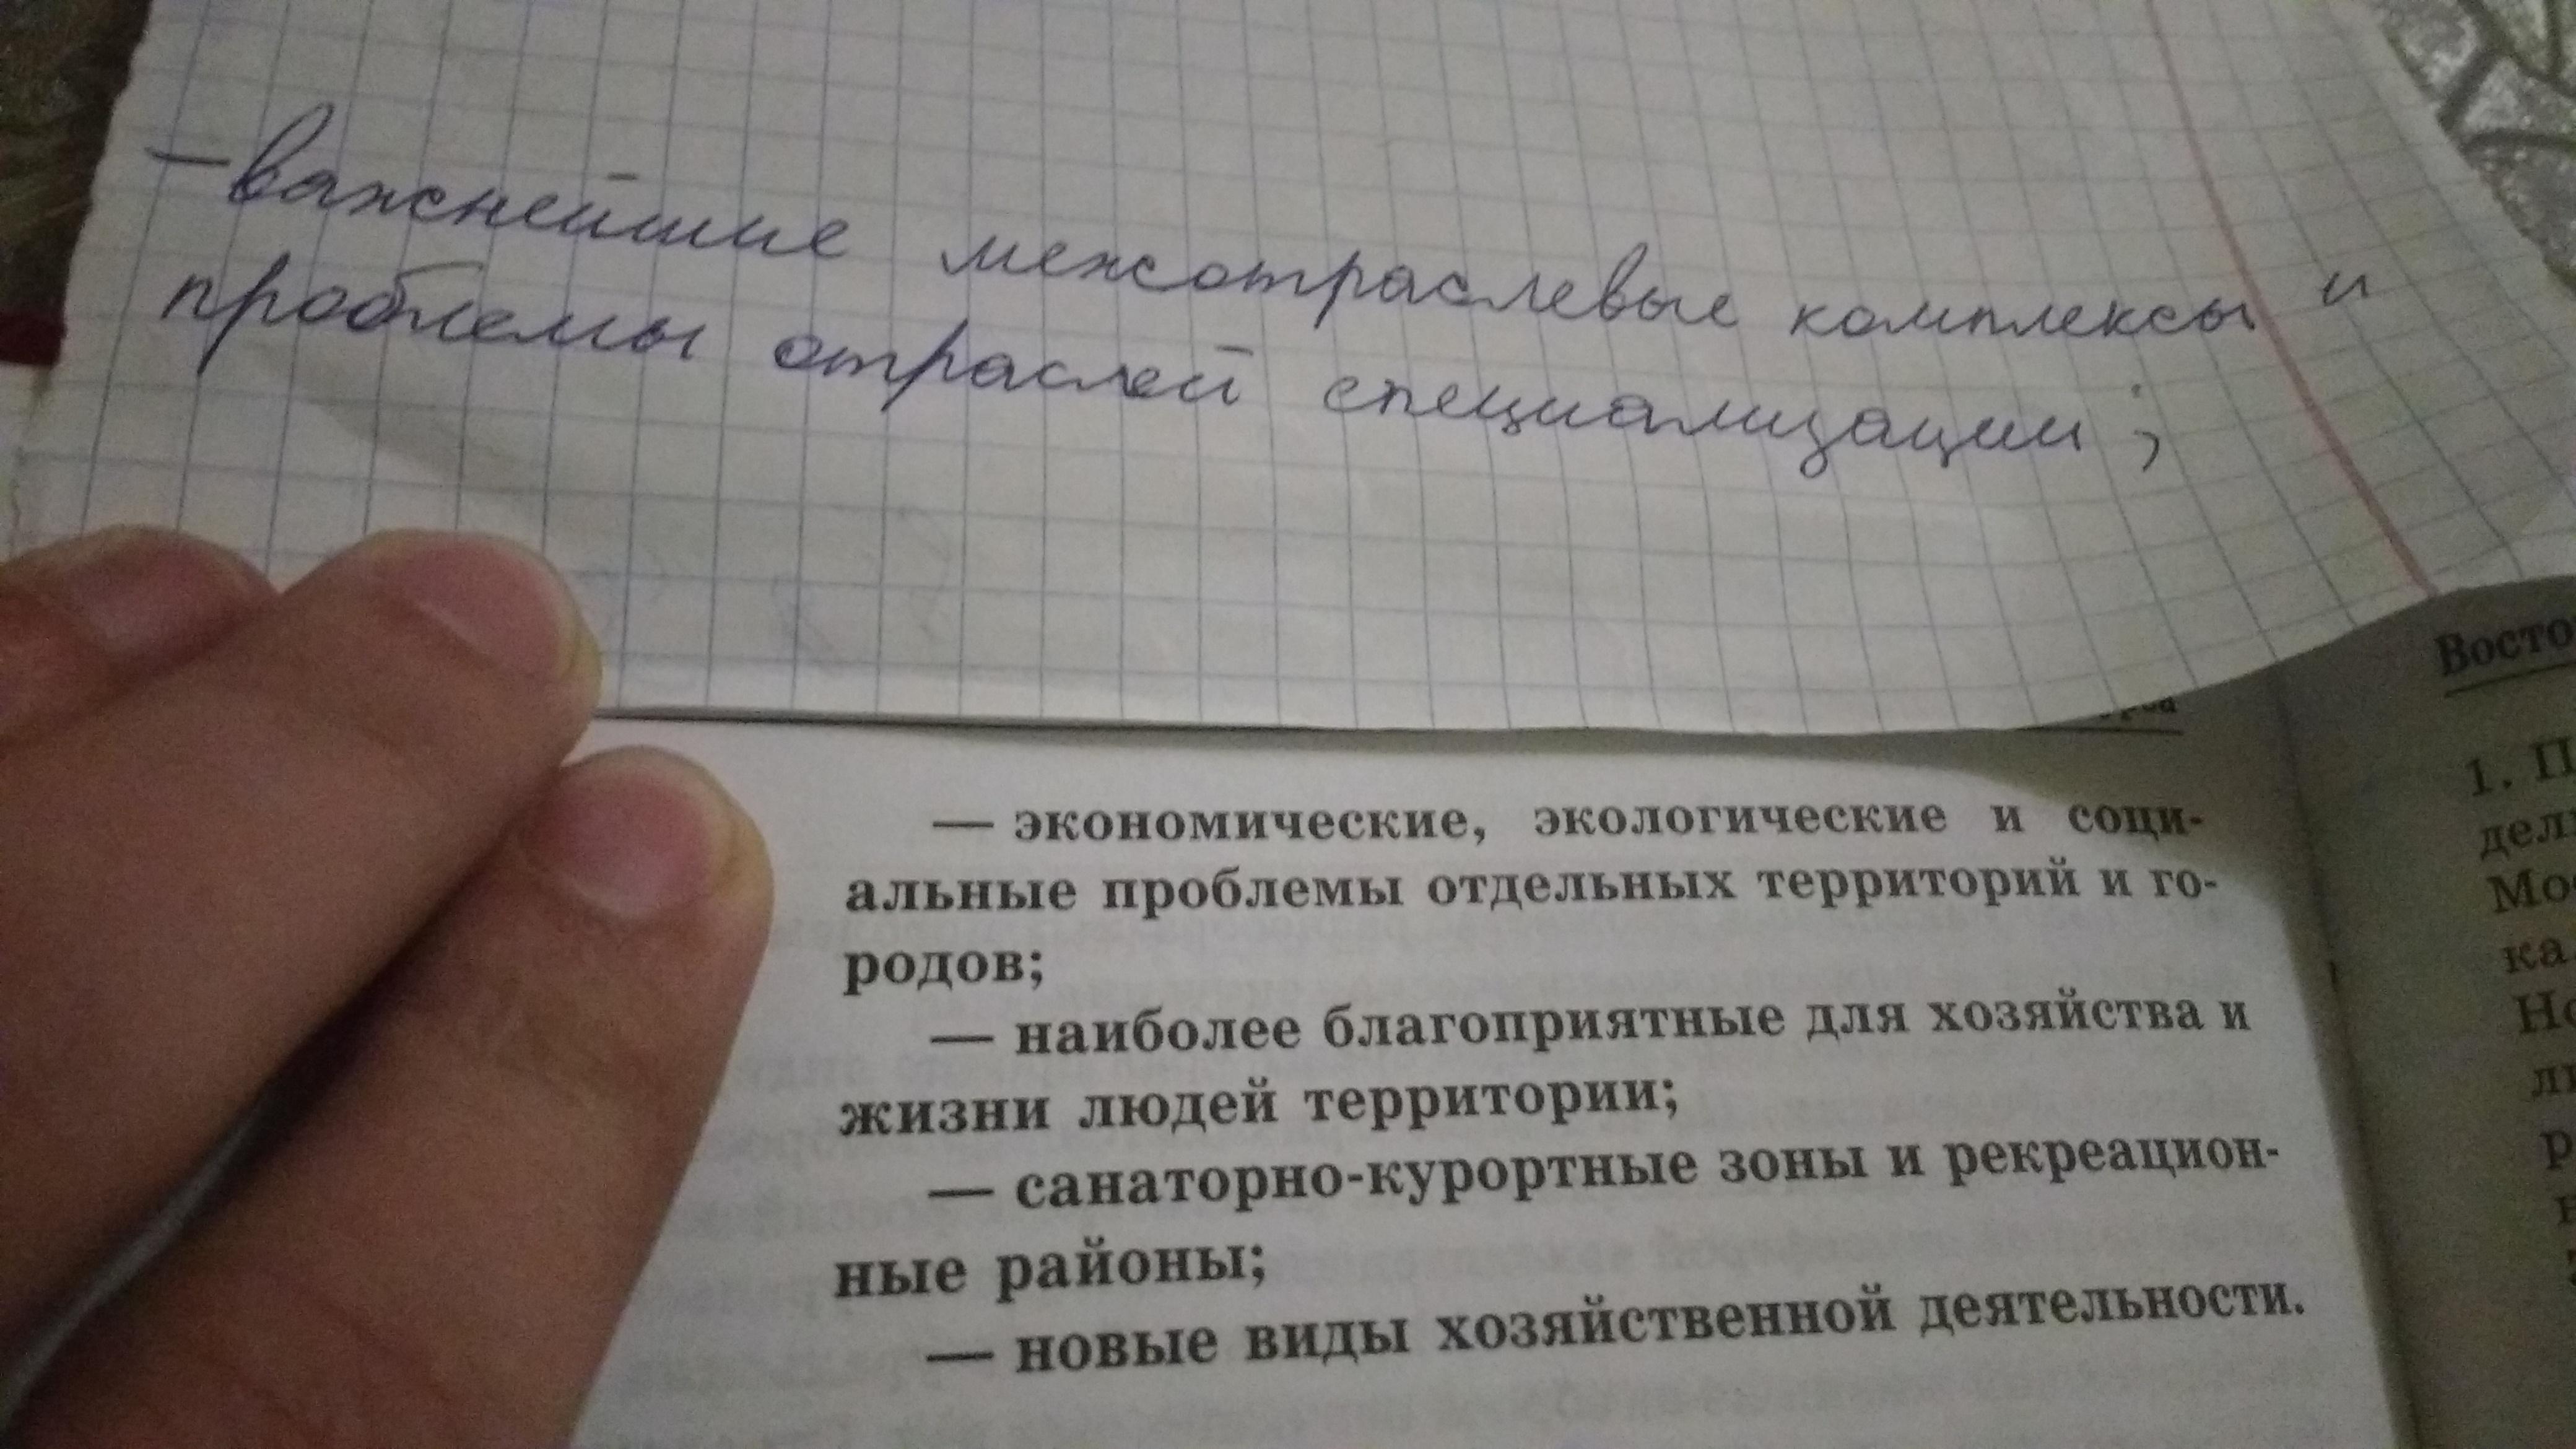 – важнейшие межотраслевые комплексы и
проблемы отраслей специализации;
— экономические, экологические и соци-
альные проблемы отдельных территорий и го-
родов;
— наиболее благоприятные для хозяйства и
жизни людей территории;
— санаторно-курортные зоны и рекреацион-
ные районы;
— новые виды хозяйственной деятельности.
Восто
1. П
дел
Мо
ка
Но